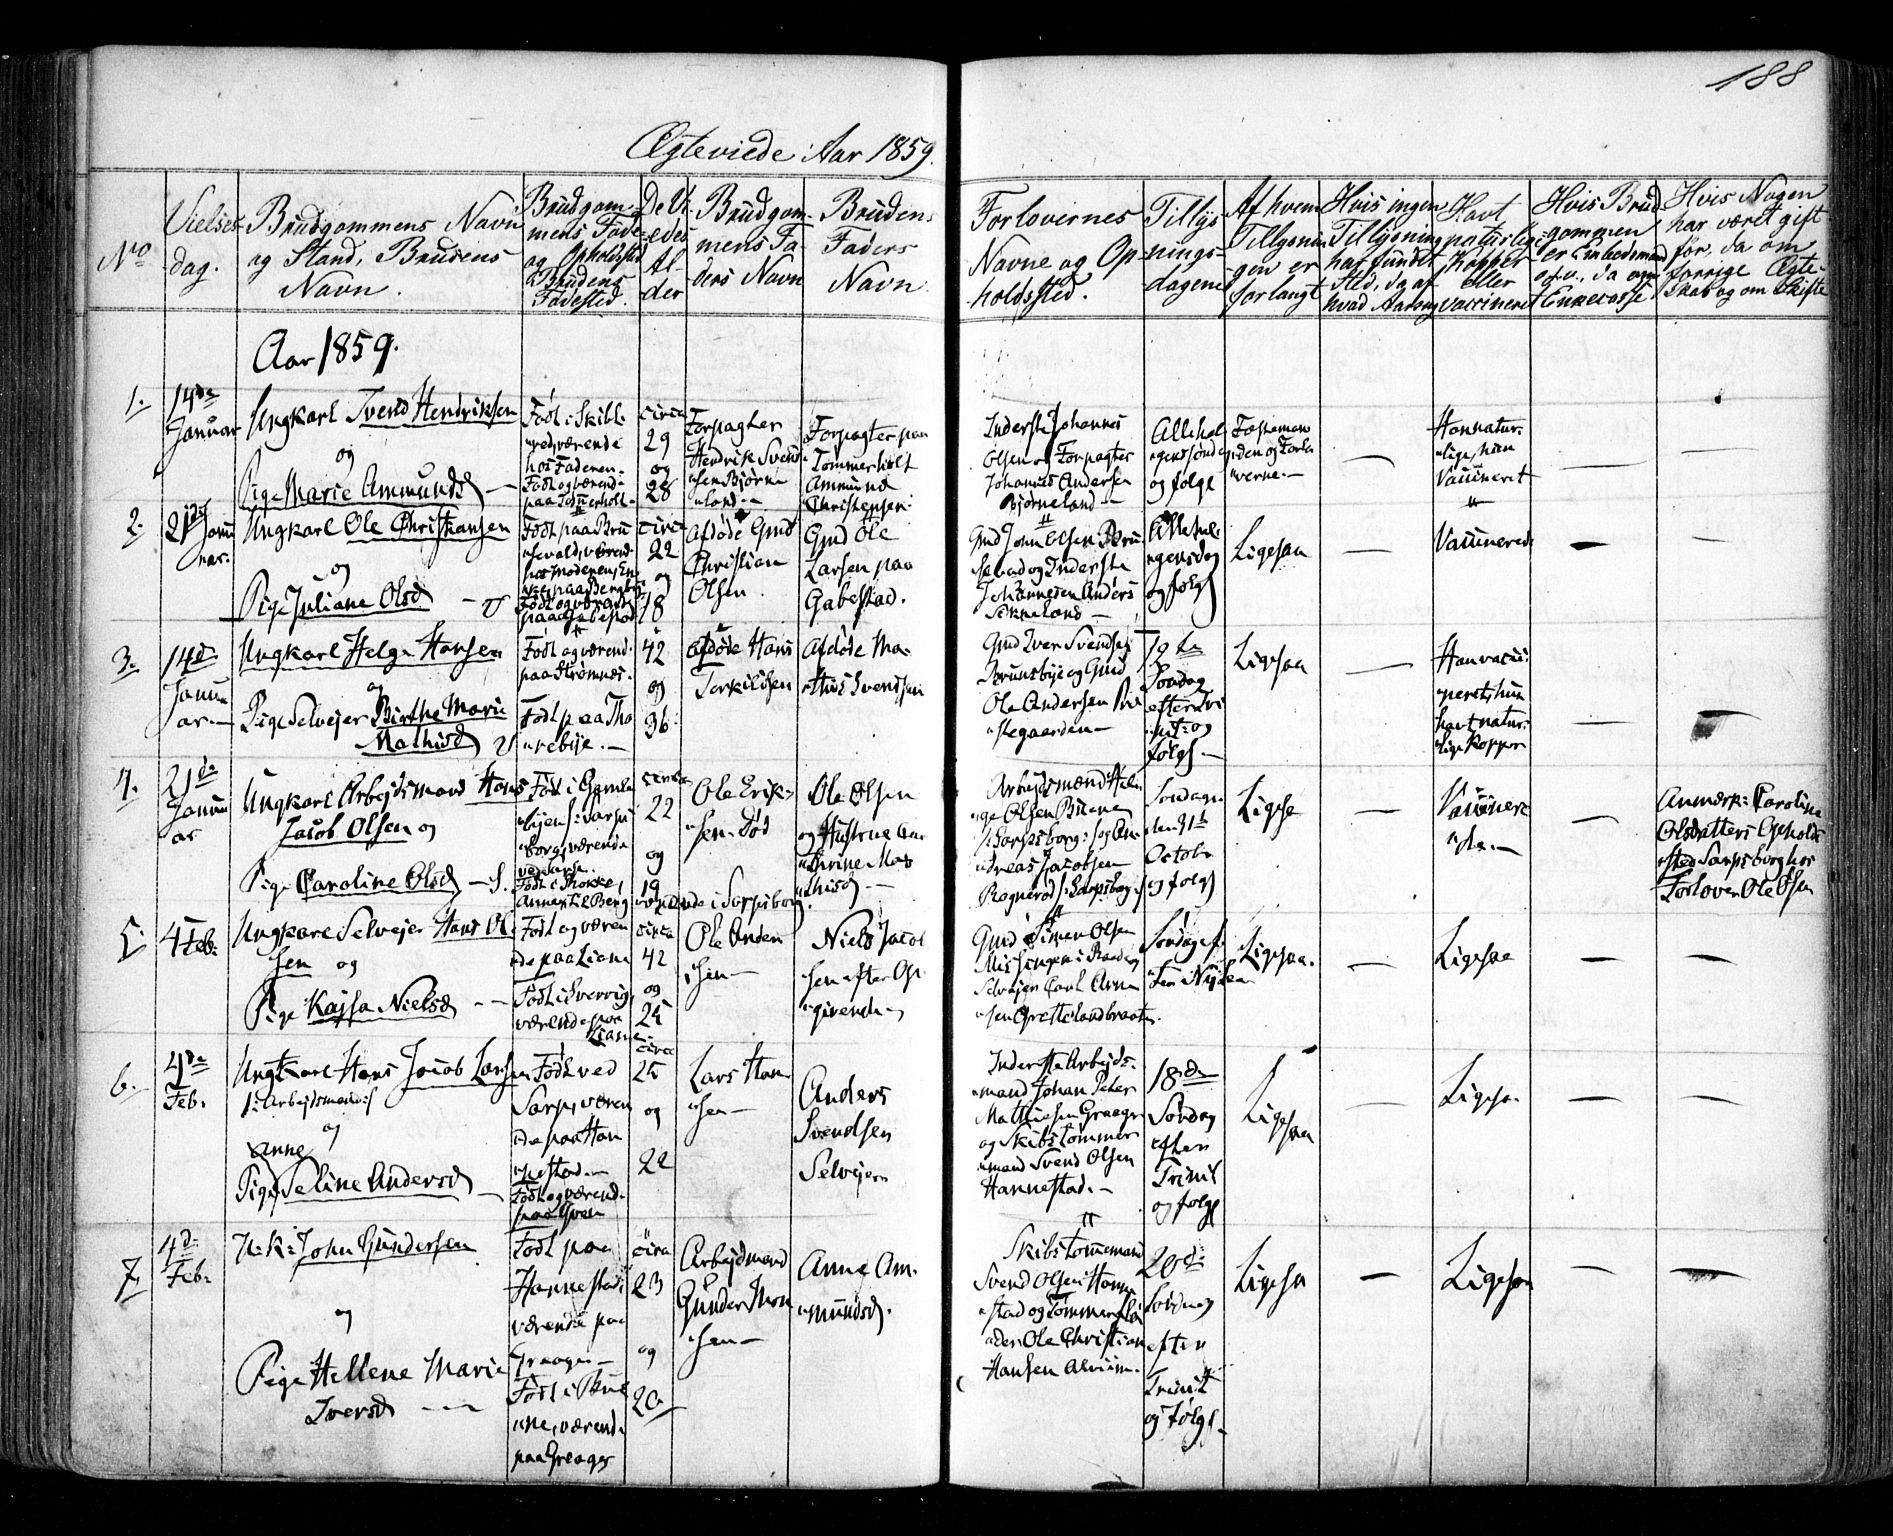 188
Ægteviede Aar 1859.
No
Vielses-
dag.
Brudgommens Navn
og Stand, Brudens
Navn.
Brudgom-
mens Føde-
og Opholdsted
Brudens
Fødested.
De Vi-
edes
Al-
der
Brudgom-
mens Fa-
ders Navn
Brudens
Faders
Navn
Forlovernes
Navne og Op-
holdssted.
Tillys-
nings-
dagene
Af hvem
Tillysnin-
gen er
forlangt
Hvis ingen
Tillysning
har fundet
Sted, da af
hvad Aarsag
Havt
naturlige
Kopper
eller
vaccineret
Hvis Brud-
gommen
er Embedsmand
o.s.v., da om
Enkecasse
Hvis Nogen
har været gift
før, da om
forrige Ægte-
skab og om Skifte
Aar 1859.
1.
14de
Januar
Ungkarl Svend Hendriksen
og
Pige Marie Ammundsd
Født i Skibt-
vedværende
hos Faderen-
Født og værend-
paa Tommerholt-
circa
29
og
28
Forpagter
Hendrik Svend-
sen Bjørne
land-
Forpagter paa
Tommerholt
Ammund
Christensen.
Inderst Johannes
Olsen og Forpagter
Johannes Andersen
Bjørneland
Allehel-
gens søndag
og følge
Fæsteman-
den og Forlo-
verne.
Han natur-
lige, hun
Vaccineret
2.
21de Janu
ar.
Ungkarl Ole Christiansen
og
Pige Juliane Olsd
Født paa Bru
sevald, værend-
hos Moderen, En
Født og værend
paa Gabestad
circa
22
og
18
Afdøde Gmd
Christian
Olsen.
Gmd Ole
Larsen paa
Gabestad.
Gmd John Olsen Bru-
sevad og Inderste
Johannesen Anders
Allehel-
gensdag
og følg
Ligesaa
Vaccinerede
3.
14de
Janu
ar.
Ungkarl Helge Hansen
og
Pige Selvejer Birthe Marie
Mathisd
Født og værend-
paa Strømnes.
Født paa Tho
rebye.
42
og
36.
Afdøde Hans
Torkildsen
Afdøde Ma-
this Svendsen
Gmd Iver Svendsen
Brunsbye og Gmd
Ole Andersen Præ
stegaarden
19de
Søndag
efter Tri
nit: og
følg
Ligesaa
Han vacci-
neret, hun
havt natur-
lige Kopper
4.
21de
Janu
ar
Ungkarl Arbejdsmand Hans
Jacob Olsen og
Pige Caroline Olsd
Født i Gamle
byen /: Sarps
borg, værende
ved Sarpen.
Født i Rokke,
Annex til Berg værende i Sarpsborg
circa
22
og
19
Ole Erik-
sen. Død
Ole Olsen
og Hustrue Ca
thrine Ma
thisd
Arbejdsmænd Hel-
ge Olsen
/: Sarpsborg :/ og An-
dreas Jacobsen
Ragnerød /: Sarpsborg :/
Søndagen
den 31te
Octobr
og følg
Ligesa
Vaccinere
de.
Anmærk: Caroline
Olsdatters Ophold
sted Sarpsborg hos
Forlover Ole Olsen
5.
4 Feb:
Ungkarl Selvejer Hans Ol
sen og
Pige Kajsa Nielsd
Født og væren
de paa Liane
Født i Sverrig,
værende paa
Liane
circa
42
og
25
Ole Ander
sen
Niels Jacob
sen efter Op-
givende
Gmd Simen Olsen
Missingen i Raade og
Selvejer Carl Arne
sen Grettelandbraaten.
Søndag ef-
ter Nytaar
Ligesaa.
Ligesaa
6.
4de
Feb.
Ungkarl Hans Jacob Larsen
/: Arbejdsmand :/
og
Anne
Pige Seline Andersd
Født ved
Sarp, væren
de paa Han
nestad.
Født og værend-
paa Aven
circa
25
og
22
Lars Han-
sen
Anders
Svendsen
Selvejer
Inderste Arbejds-
mand Johan Peter
Mathisen Graager
og Skibstømmer
mand Svend Olsen
Hannestad.
18de
Søndag
efter
Trinit
og følge
Ligesaa
Ligesa.
7.
4de
Feb:
U: K: John Gundersen
og
Pige Hellene Marie
Iversd
Født paa
Hannestad,
værende paa
Graager
Født i Tune
værend-
paa Greager
circa
23
og
20
Arbejdmand
Gunder Jon
sen
Anne Am-
mundsd.
Skibstømmermand
Svend Olsen Hanne
stad og Tømmerfløi
der Ole Christian
Hansen Alvim.
20de
Søndag
efter
Trinit
og følge.
Ligesa
Ligesaa